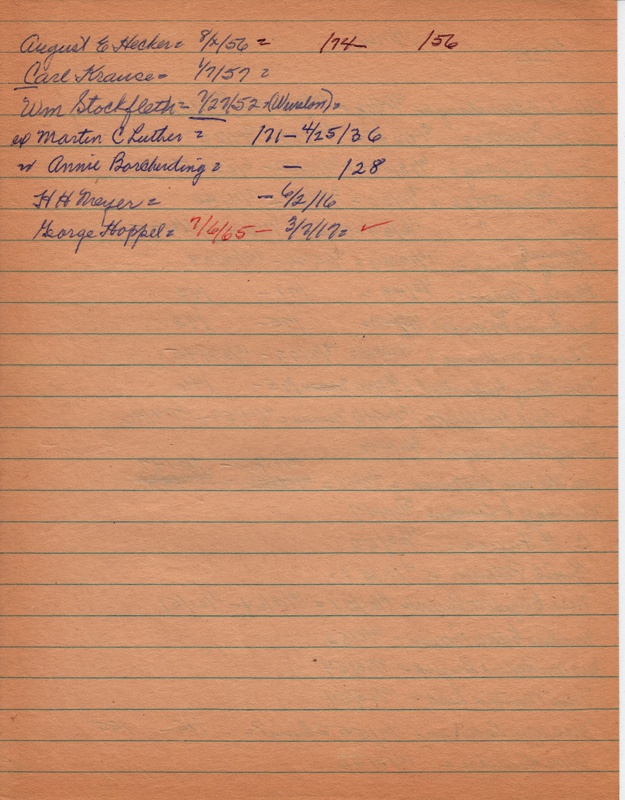 August E Hecker = 8/2/56 = /74 /56
Carl Krause = 1/7/57 =
Wm Stockfleth = 7/27/52 =
Martin C Luther = /71 - 4/25/36
Annie Borcherding = - /28
H H Meyer = - 6/2/16
George Hoppel = 7/6/65 - 3/7/17 = ✓